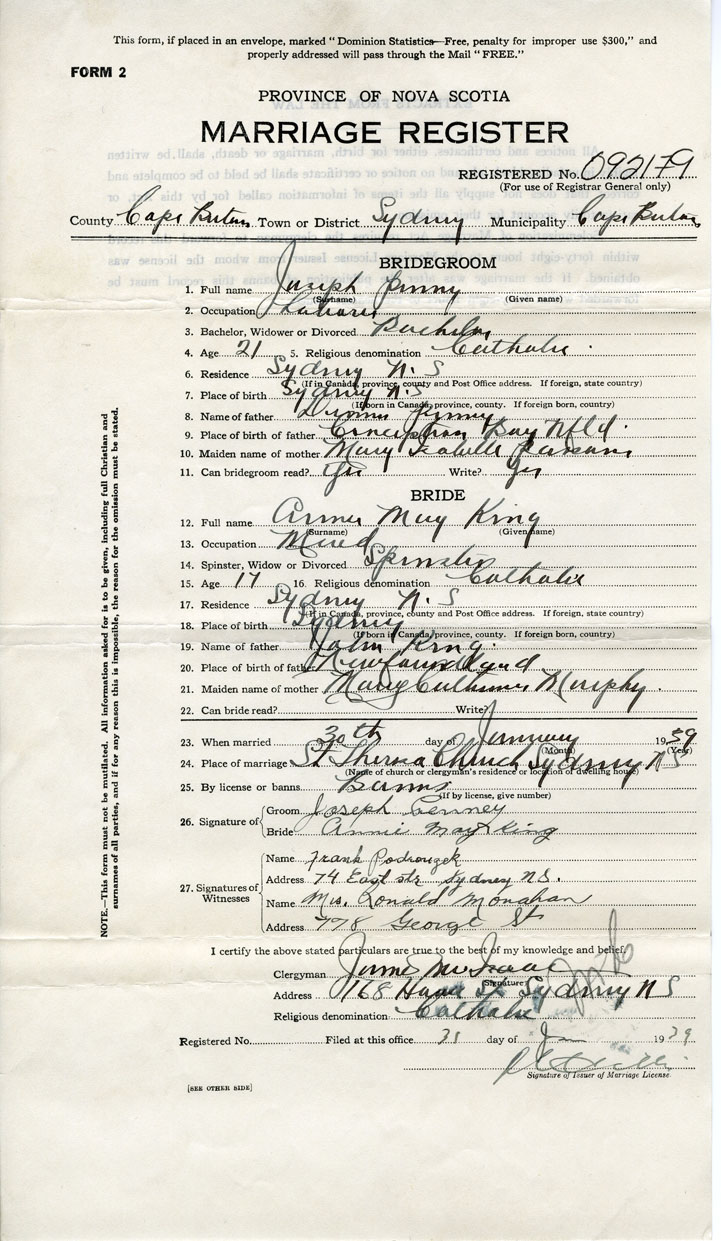 This form, if placed in an envelope, marked "Dominion Statistics—Free, penalty for improper use $300," and
properly addressed will pass through the Mail "FREE."
FORM 2
PROVINCE OF NOVA SCOTIA
MARRIAGE REGISTER
REGISTERED No. 092179
(For use of Registrar General only)
County Cape Breton Town or District Sydney Municipality Cape Breton
BRIDEGROOM
1. Full name Joseph Penny
(Surname) (Given name)
2. Occupation Laborer
3. Bachelor, Widower or Divorced Bachelor
4. Age 21 5. Religious denomination Catholic
6. Residence Sydney N. S
(If in Canada, province, county and Post Office address. If foreign, state country)
7. Place of birth Sydney N. S
(If born in Canada, province, county. If foreign born, country)
8. Name of father Penny
9. Place of birth of father Conception Bay Nfld.
10. Maiden name of mother Mary Isabelle Parsons
11. Can bridegroom read? Yes Write? Yes
BRIDE
12. Full name Annie May King
(Surname) (Given name)
13. Occupation Maid
14. Spinster, Widow or Divorced Spinster
15. Age 17 16. Religious denomination Catholic
17. Residence Sydney N. S
(If in Canada, province, county and Post Office address. If foreign, state country)
18. Place of birth Sydney
(If born in Canada, province, county. If foreign born, country)
19. Name of father John King
20. Place of birth of father Newfoundland
21. Maiden name of mother Mary Catherine Murphy.
22. Can bride read? Write?
23. When married 30th day of January 1939
(Month) (Year)
24. Place of marriage St Theresa Church Sydney N S
(Name of church or clergyman's residence or location of dwelling house)
25. By license or banns Banns
(If by license, give number)
26. Signature of
Groom Joseph Penney
Bride Annie May King
27. Signatures of Witnesses
Name Frank Podrouzek
Address 74 East str Sydney N.S.
Name Mrs. Ronald Monahan
Address 778 George St
I certify the above stated particulars are true to the best of my knowledge and belief.
Clergyman
(Signature)
Address 168 St Sydney N S
Religious denomination Catholic
Registered No. Filed at this office 31 day of Jan 1939
Signature of Issuer of Marriage License.
[SEE OTHER SIDE]
NOTE.—This form must not be mutilated. All information asked for is to be given, including full Christian and
surnames of all parties, and if for any reason this is impossible, the reason for the omission must be stated.